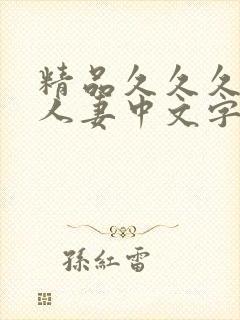 精品久久久
人妻中文字
孫紅雷